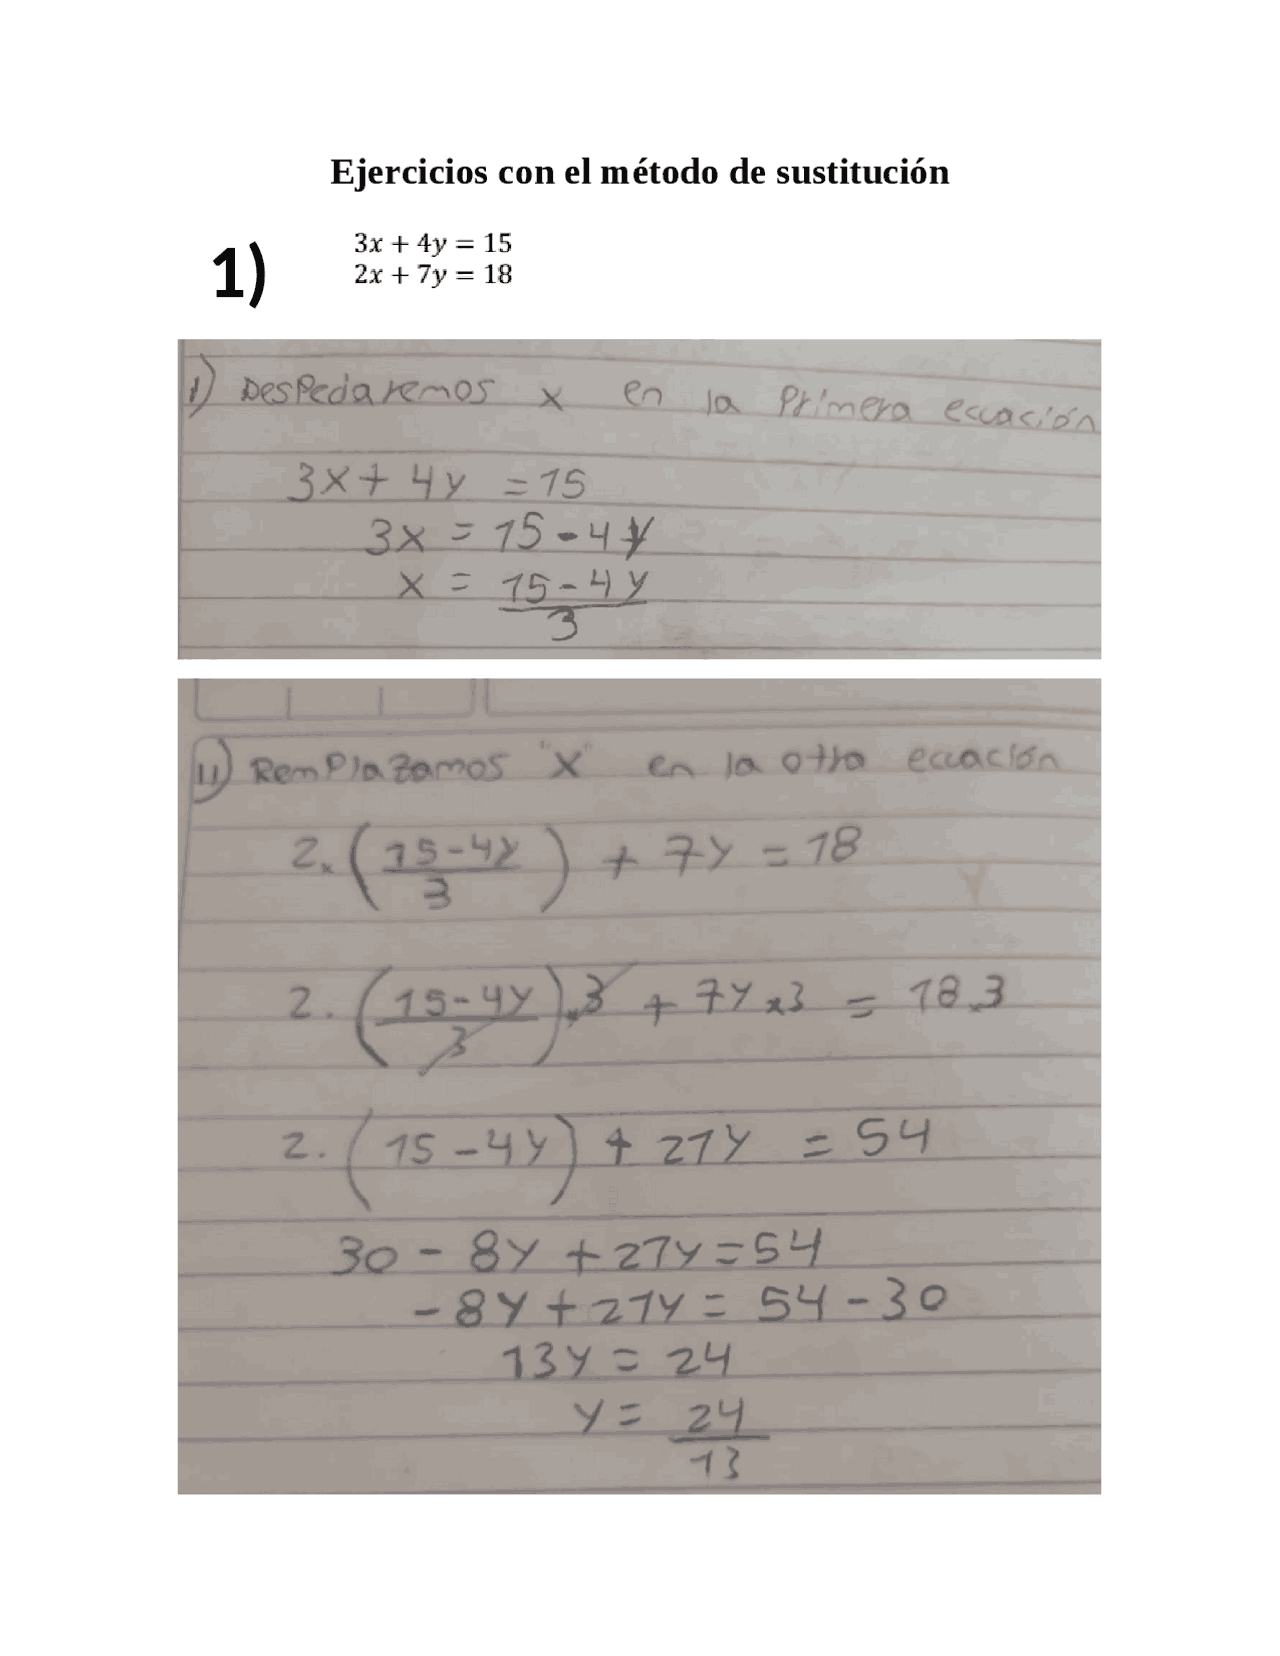 Ejercicios con el método de sustitución
1)
3x + 4y = 15
2x + 7y = 18
I) Despedaremos x en la Primera ecuación
3x + 4y = 15
3x = 15 - 4y
x = 15 - 4y
3
II) RemPlazamos "X" en la otra ecuación
2x (15 - 4y) + 7y = 18
3
2. (15 - 4y) x 3 + 7y x 3 = 18.3
3
2. (15 - 4y) + 21y = 54
30 - 8y + 21y = 54
- 8y + 21y = 54 - 30
13y = 24
y = 24
13